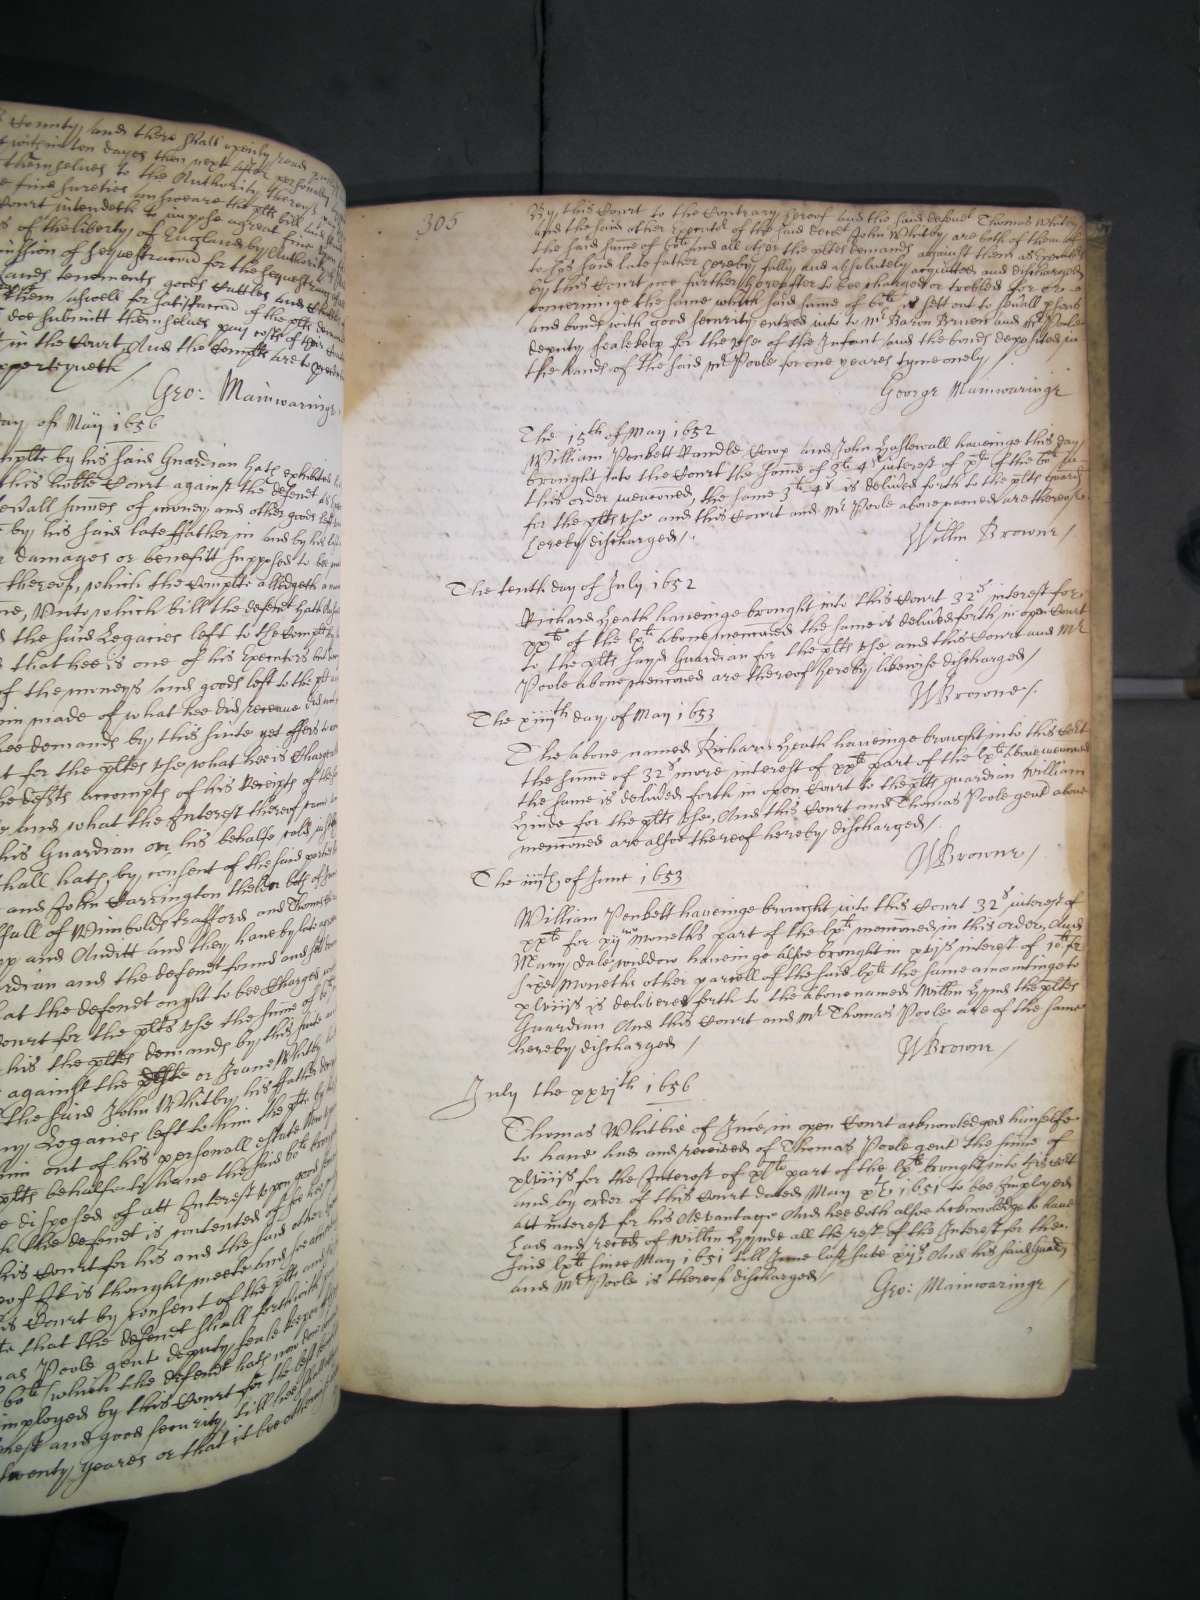 County, and there shall openly read
within ten dayes then next after personally
themselves to the Authority thereof
fine sureties answeare the plts bill and
Court intendeth to impose a great fine
of the liberty of England by Authority
mission of Sequestracon for the sequestring
Lands tenements goods Cattles and
them aswell for satisfaccon of the plts
doe submitt themselves pay costs of this
in the Court And the Complts are to
apperteyneth /
Geo: Mainwaringe
day of May 1656
Complt by his said Guardian hath exhibited
this hoble Court against the defendt
severall sumes of money and other goods left
by his said late ffather in and by his
damages or benefitt supposed to bee
thereof, which the Complt alledgeth
Unto which bill the defendt hath
the said Legacies left to the Complt
that hee is one of his Executors
of the moneys and goods left to the plt
him made of what hee did receave
hee demands by this suite yet offers to
for the pltes use what hee is Charged
the defts accompts of his Receipts of the
and what the Interest thereof
his Guardian on his behalfe
shall hath, by consent of the said parties
and John Carrington thelder both of
hall of Wimbolds trafford and Thomas
and Auditt and they have by late
Guardian and the defendt found and sett
that the defendt ought to bee Charged
Court for the plts use the sume of
his the pltes demands by this suite
against the or Joane Whitby
the said John Whitby his ffather
any Legacies left to him the plt by
him out of his personall estate
plts behalfe to have the said 60li
disposed of att Interest upon good
the defendt is contented
this Court for his and the said other
of It is thought meete and
this Court by consent of the plt and
that the defendt shall forthwith
Thomas Poole gent deputy seale keeper
60li which the defendt hath now
imployed by this Court for the best
Interest and good security, till hee
twenty yeares or that it bee otherwise
305
By this Court to the Contrary hereof and the said defendt Thomas Whitby
and the said other Executr of the said decedt John Whitby are both of them of
the said sume of 60li and all other the pltes demands against them as Executrs
to his said late father hereby fully and absolutely acquitted and discharged
by this Court nor further hereafter to bee charged or trobled for or
concerninge the same which said sume of 60li is sett out to sevrall psons
and bonds with good security entred into to Mr Baron Bruen and Mr Poole
deputy sealekeep for the use of the Infant and the bonds deposited in
the hands of the said Mr Poole for one yeares tyme onely /
George Mainwaringe
The 15th of May 1652
William Penkett Randle Cowp and John Haslewall haveinge this day
brought into the Court the some of 3li 4s interest of xli of the 60li in
this order mencioned, the same 3li 4s is delivred forth to the plts guardn
for the plts use and this Court and Mr Poole above named are thereof
hereby discharged /
Willm Browne /
The tenth day of July 1652
Richard Heath haveinge brought into this Court 32s interest for
xxli of the lxli above mencioned the same is delivred forth in open Court
to the plts sayd Guardian for the plts use and this Court and Mr
Poole above mencioned are thereof hereby likewise discharged /
WBrowne /
The xiiijth day of May 1653
The above named Richard Heath haveinge brought into this Court
the sume of 32s more interest of xxli part of the lxli above mencioned
the same is delivred forth in open Court to the plts guardian William
Hinde for the plts use, And this Court and Thomas Poole gent above
mencioned are alsoe thereof hereby discharged /
WBrowne /
The iiijth of June 1653
William Penkett haveinge brought into this Court 32s interest of
xxli for xij moneths part of the lxli mencioned in this order, And
Mary Dale widdow haveinge alsoe brought in xvjs interest of 10li for
sixe moneths other parcell of the said lxli the same amountinge to
xlviijs is delivered forth to the abovenamed Willm Hynd the pltes
Guardian And this Court and Mr Thomas Poole are of the same
hereby discharged /
WBrowne /
July the xxvjth 1656
Thomas Whitbie of Ince, in open Court acknowledged himselfe
to have had and received of Thomas Poole gent the sume of
xlviijs for the Interest of xli part of the lxli brought into this Court
and by order of this Court dated May xth 1651 to bee Imployed
att interest for his Advantage And hee doth alsoe acknowledge to have
had and reced of Willm Hynde all the rest of the Interest for the
said lxli since May 1651 till June last save xijs And his said Guardn
and Mr Poole is thereof discharged /
Geo: Mainwaringe /